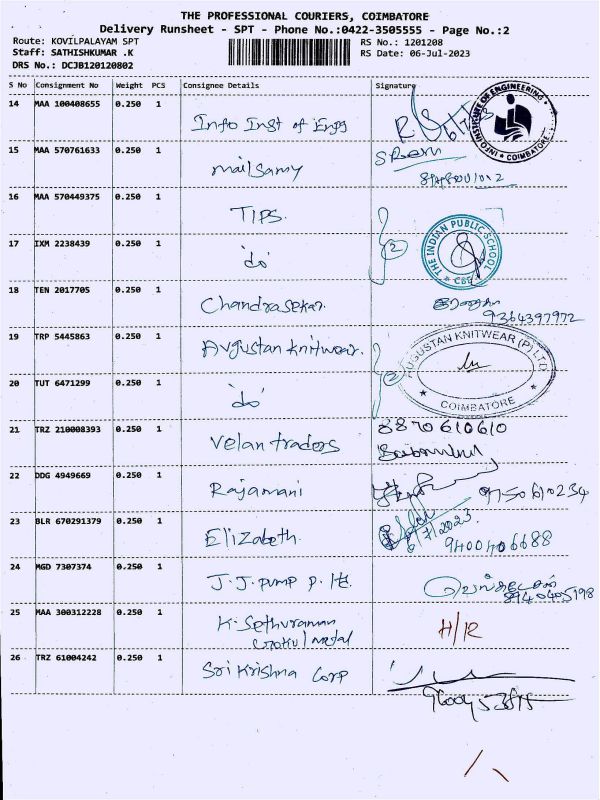 THE PROFESSIONAL COURIERS, COIMBATORE
Delivery Runsheet - SPT - Phone No.:0422-3505555 - Page No.:2
Route: KOVILPALAYAM SPT RS No.: 1201208
Staff: SATHISHKUMAR .K RS Date: 06-Jul-2023
DRS No.: DCJB120120802
S No Consignment No Weight PCS Consignee Details Signature
14 MAA 100408655 0.250 1 Info Inst of Engg
INFO INSTITUTE OF ENGINEERING COIMBATORE
15 MAA 570761633 0.250 1 mailsamy
16 MAA 570449375 0.250 1 TIPS. 2
THE INDIAN PUBLIC SCHOOL
17 IXM 2238439 0.250 1 "do"
18 TEN 2017705 0.250 1 Chandrasekar. 9364397972
19 TRP 5445863 0.250 1 Avgustan Knitwear. 2
AUGUSTAN KNITWEAR (P) LTD. COIMBATORE
20 TUT 6471299 0.250 1 "do"
21 TRZ 210008393 0.250 1 Velan traders 8870610610
22 DDG 4949669 0.250 1 Rajamani 9750610234
23 BLR 670291379 0.250 1 Elizabeth. 6/7/2023. 9400406688
24 MGD 7307374 0.250 1 J.J. pump p. lt.
25 MAA 300312228 0.250 1 K. Sethuraman H/R
Gokul metal
26 TRZ 61004242 0.250 1 Sri Krishna Corp